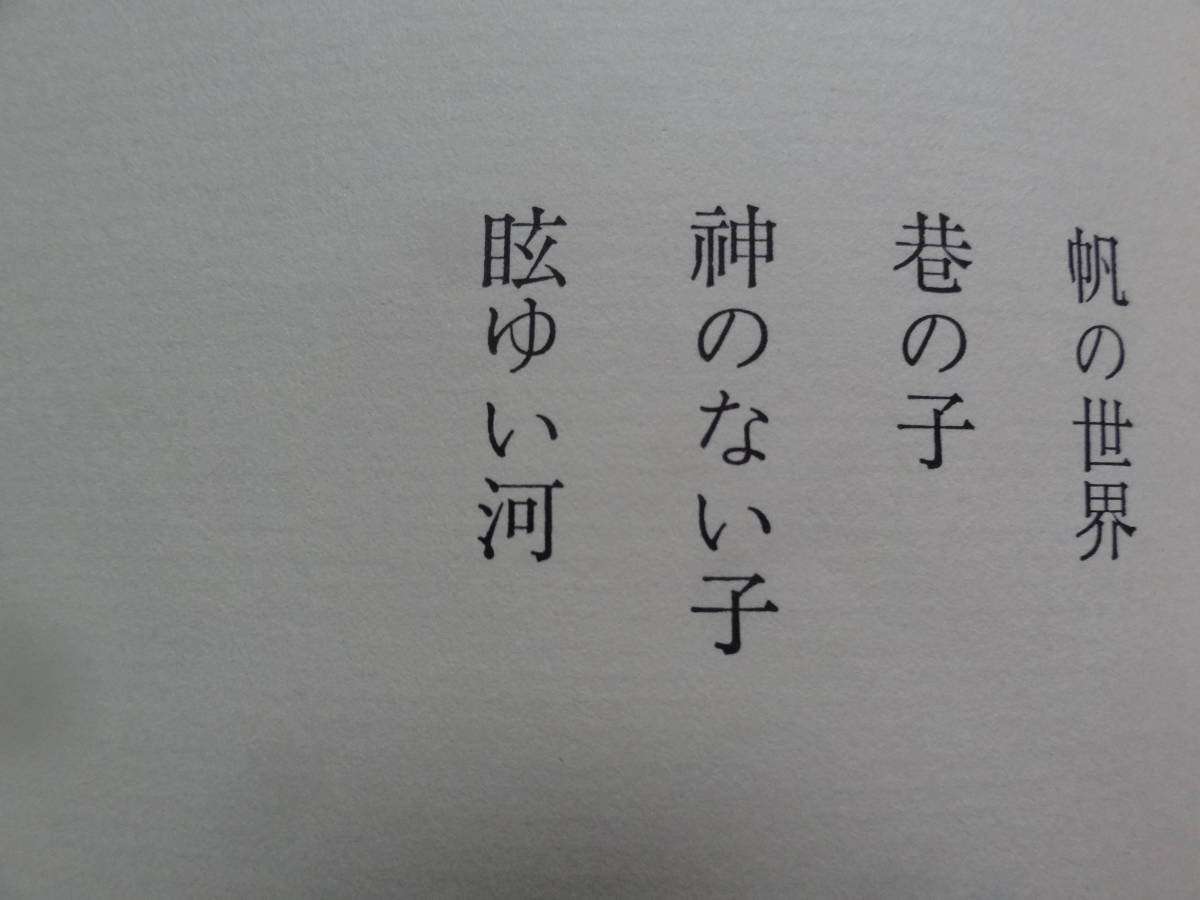 帆の世界
巷の子
神のない子
眩ゆい河